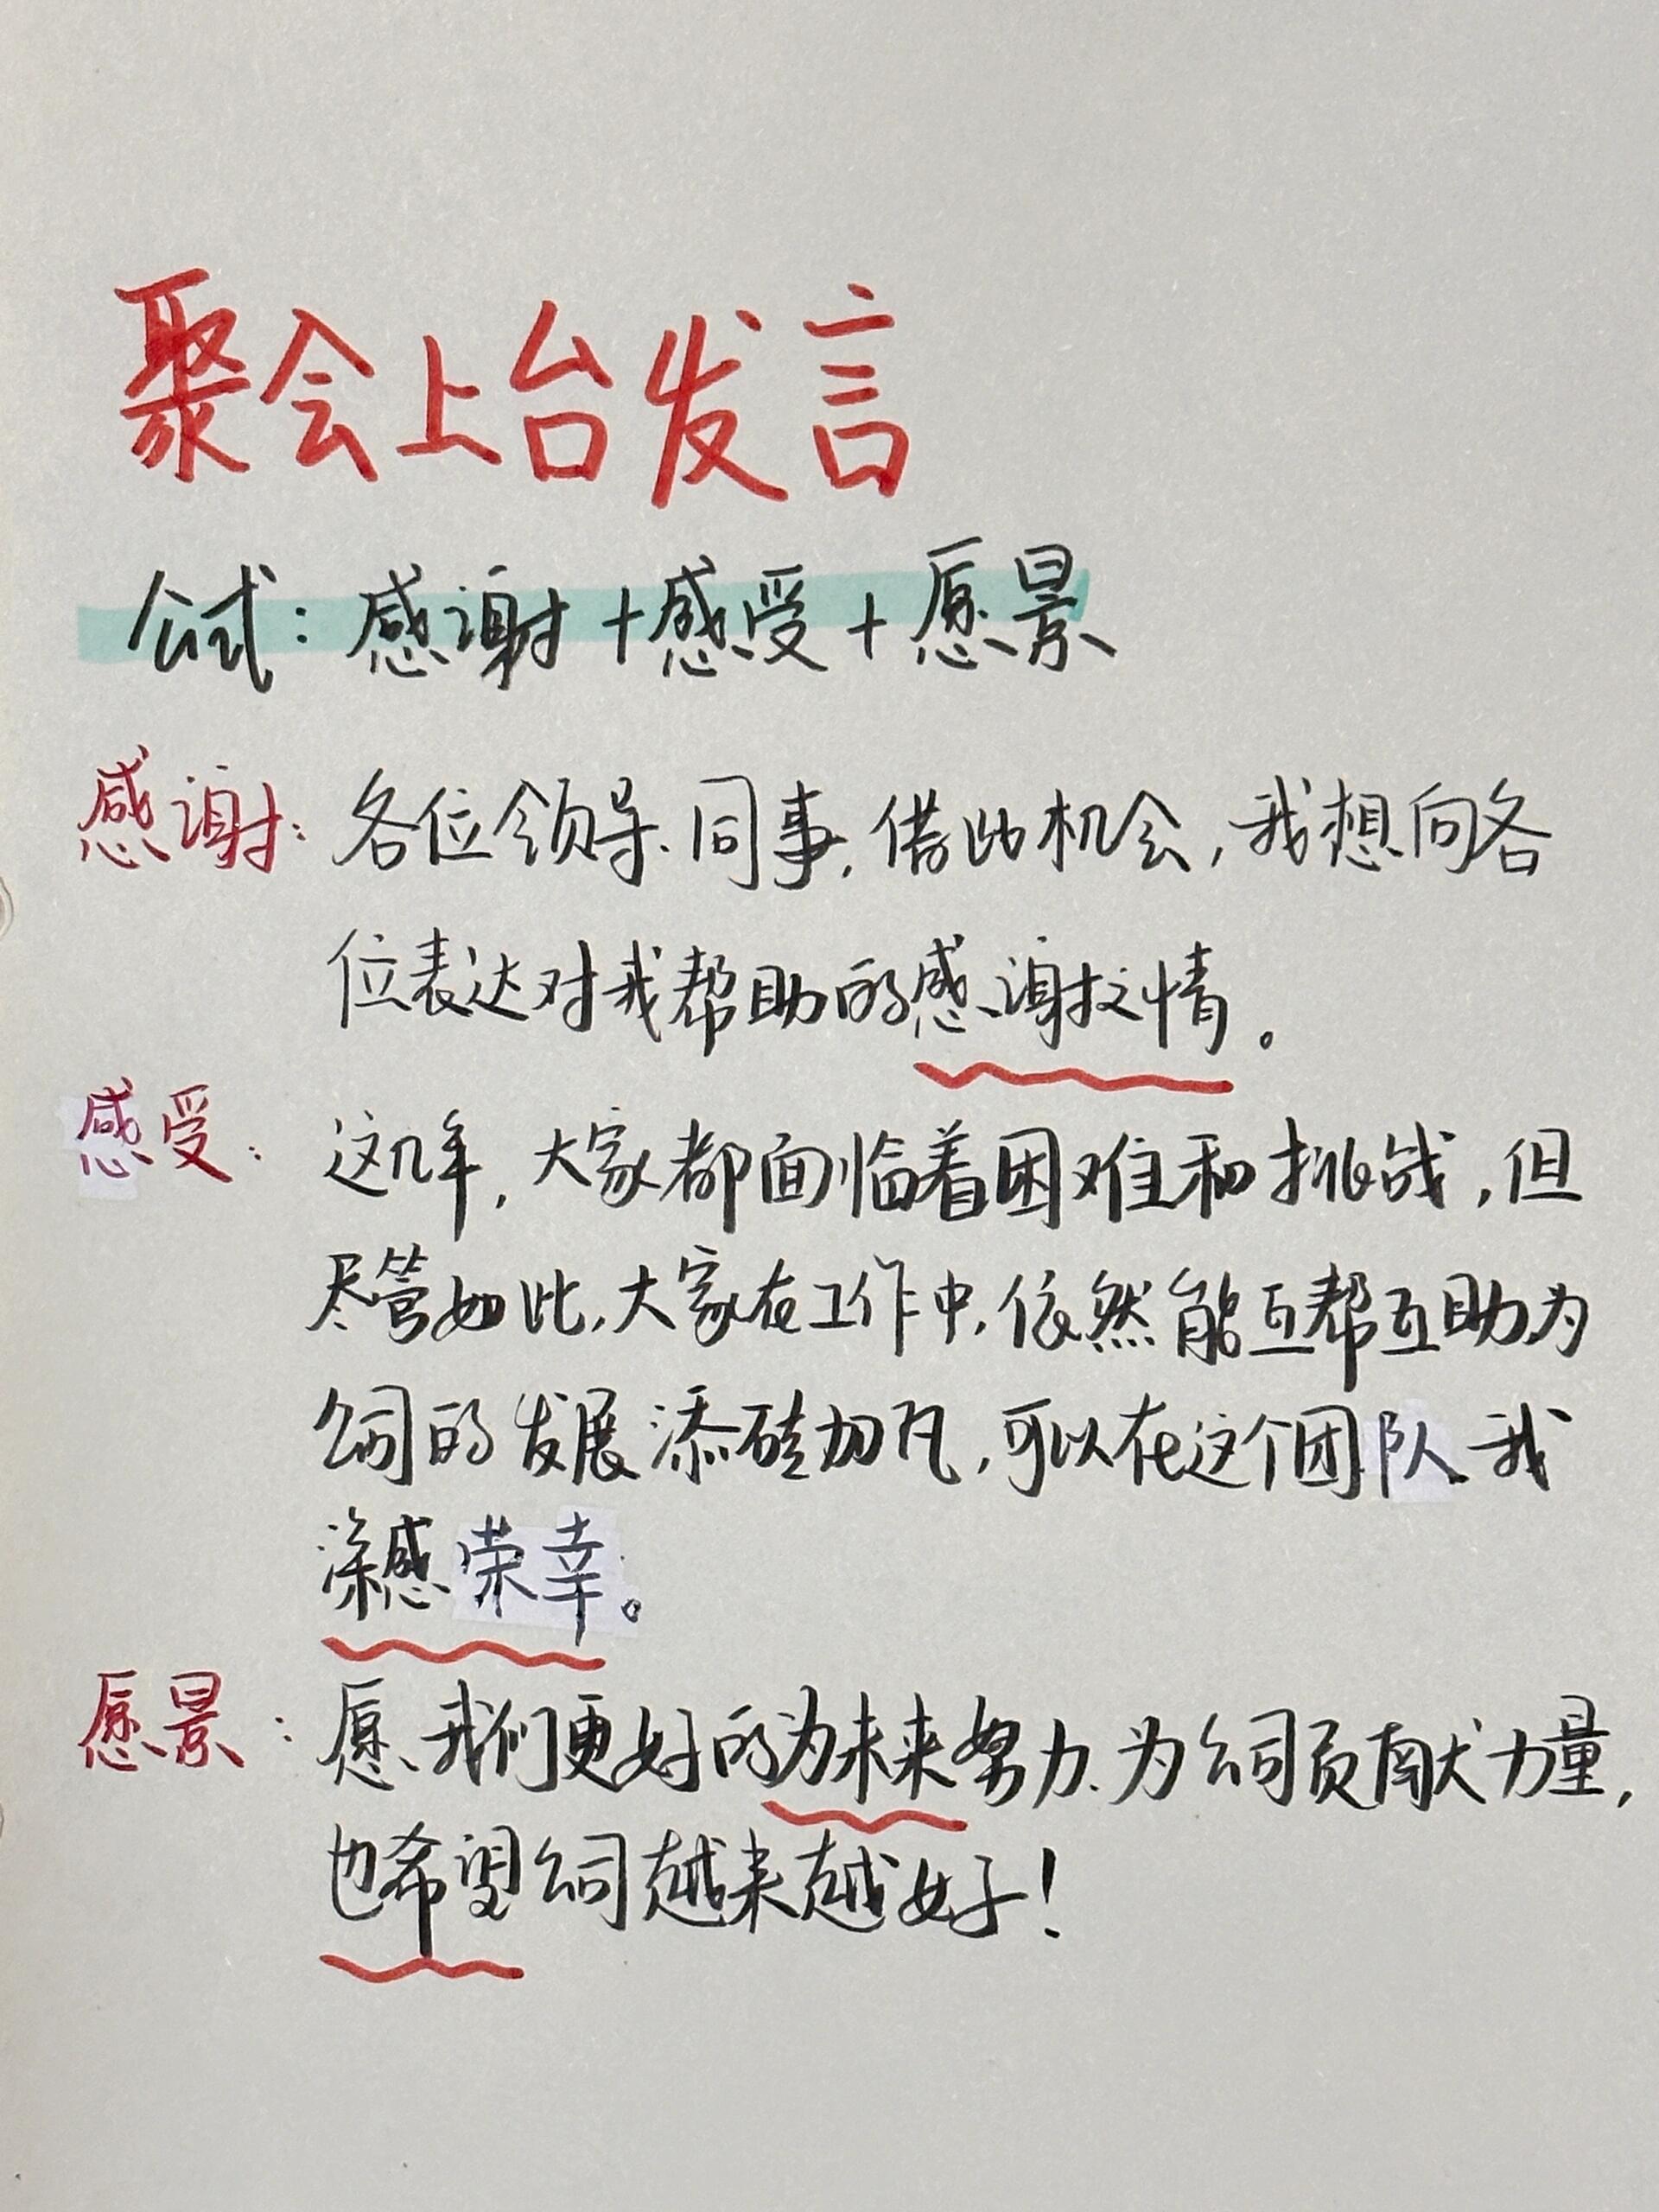 聚会上台发言
公式：感谢+感受+愿景
感谢：各位领导、同事，借此机会，我想向各
位表达对我帮助的感谢之情。
感受：这几年，大家都面临着困难和挑战，但
尽管如此，大家在工作中，依然能互帮互助为
公司的发展添砖加瓦，可以在这个团队、我
深感荣幸。
愿景：愿我们更好的为未来努力、为公司贡献力量，
也希望公司越来越好！